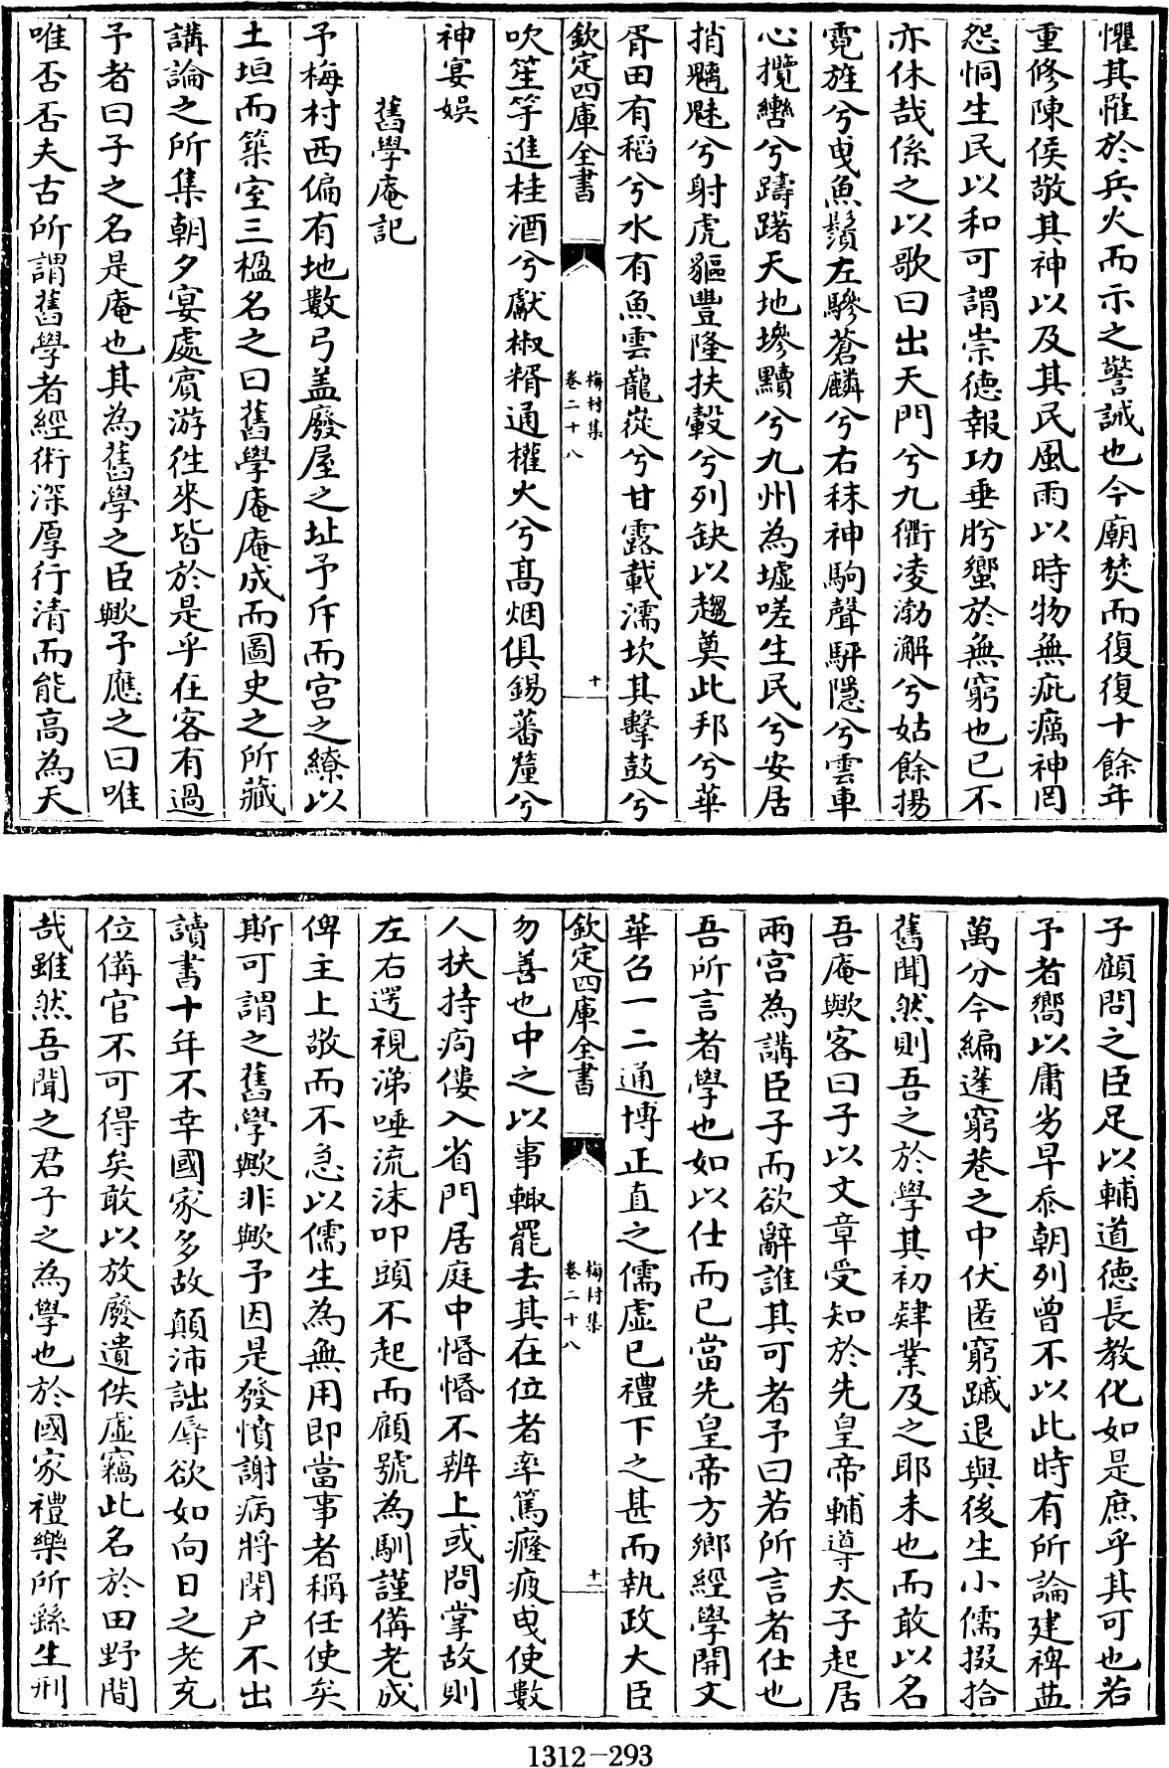 懼其罹於兵火而示之警誡也今廟焚而復復十餘年
重修陳侯敬其神以及其民風雨以時物無疵癘神罔
怨恫生民以和可謂崇德報功垂肹蠁於無窮也已不
亦休哉係之以歌曰出天門兮九衢凌渤澥兮姑餘揚
霓旌兮曳魚鬚左驂蒼麟兮右秣神駒聲駍隱兮雲車
心攬轡兮躊躇天地墋黷兮九州為墟嗟生民兮安居
捎魑魅兮射虎貙豐隆扶轂兮列缺以趨奠此邦兮華
胥田有稻兮水有魚雲龍從兮甘露載濡坎其擊鼓兮
欽定四庫全書
梅村集
卷二十八
十
吹笙竽進桂酒兮獻椒糈通權火兮高烟俱錫蕃釐兮
神宴娛
舊學庵記
予梅村西偏有地數弓盖廢屋之址予斥而宫之繚以
土垣而築室三楹名之曰舊學庵庵成而圖史之所藏
講論之所集朝夕宴處賔游徃來皆於是乎在客有過
予者曰子之名是庵也其為舊學之臣歟予應之曰唯
唯否否夫古所謂舊學者經術深厚行清而能高為天
子顧問之臣足以輔道德長教化如是庶乎其可也若
予者嚮以庸劣早忝朝列曾不以此時有所論建裨益
萬分今編蓬窮巷之中伏匿窮蹴退與後生小儒掇拾
舊聞然則吾之於學其初肄業及之耶未也而敢以名
吾庵歟客曰子以文章受知於先皇帝輔導太子起居
兩宫為講臣子而欲辭誰其可者予曰若所言者仕也
吾所言者學也如以仕而已當先皇帝方鄉經學開文
華召一二通博正直之儒虚已禮下之甚而執政大臣
欽定四庫全書
梅村集
卷二十八
十一
勿善也中之以事輙罷去其在位者率篤癃疲曳使數
人扶持痀僂入省門居庭中惛惛不辨上或問掌故則
左右遌視涕唾流沫叩頭不起而顧號為馴謹偹老成
俾主上敬而不急以儒生為無用即當事者稱任使矣
斯可謂之舊學歟非歟予因是發憤謝病將閉户不出
讀書十年不幸國家多故顛沛詘辱欲如向日之老充
位偹官不可得矣敢以放廢遺佚虚竊此名於田野間
哉雖然吾聞之君子之為學也於國家禮樂所繇生刑
1312-293